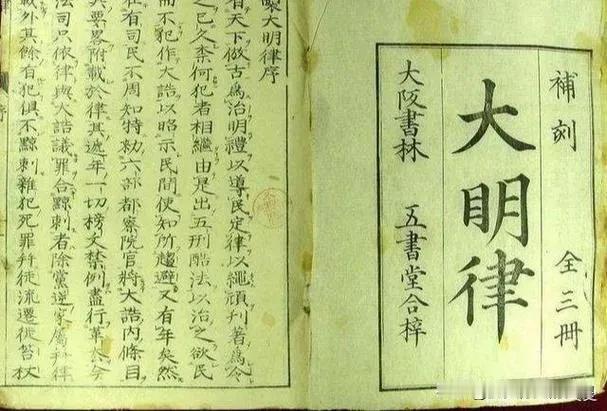 補刻 全三冊
大明律
大阪書林 五書堂合梓
製大明律序
有天下倣古爲治明禮以導民定律以繩頑刊著爲令
之已久柰何犯者相繼由是出五刑酷法以治之欲民
而不犯作大誥以昭示民間使知所趨避又有年矣然
在有司民不周知特勑六部都察院官將大誥內條目
其要畧附載於律其逓年一切榜文禁例盡行革去今
法司只依律與大誥議罪合黥刺者除黨逆家屬幷律
載外其餘有犯俱不黥刺雜犯死罪幷徒流遷徙笞杖
序